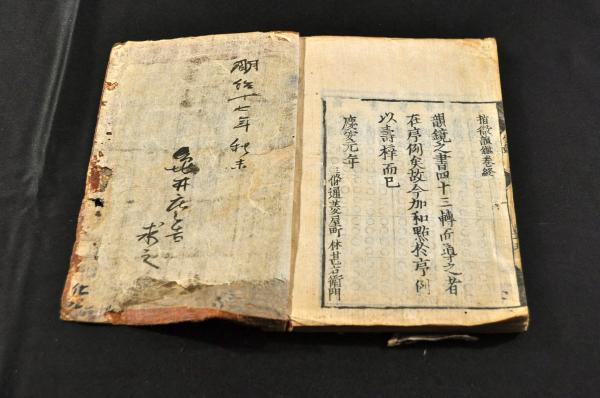 指微韻鑑卷終
韻鏡之書四十三轉所導之者
在序例矣故今加和點於序例
以壽梓而已
慶安元年
通菱屋町 林甚右衛門
明治十七年秋末
亀井
求之